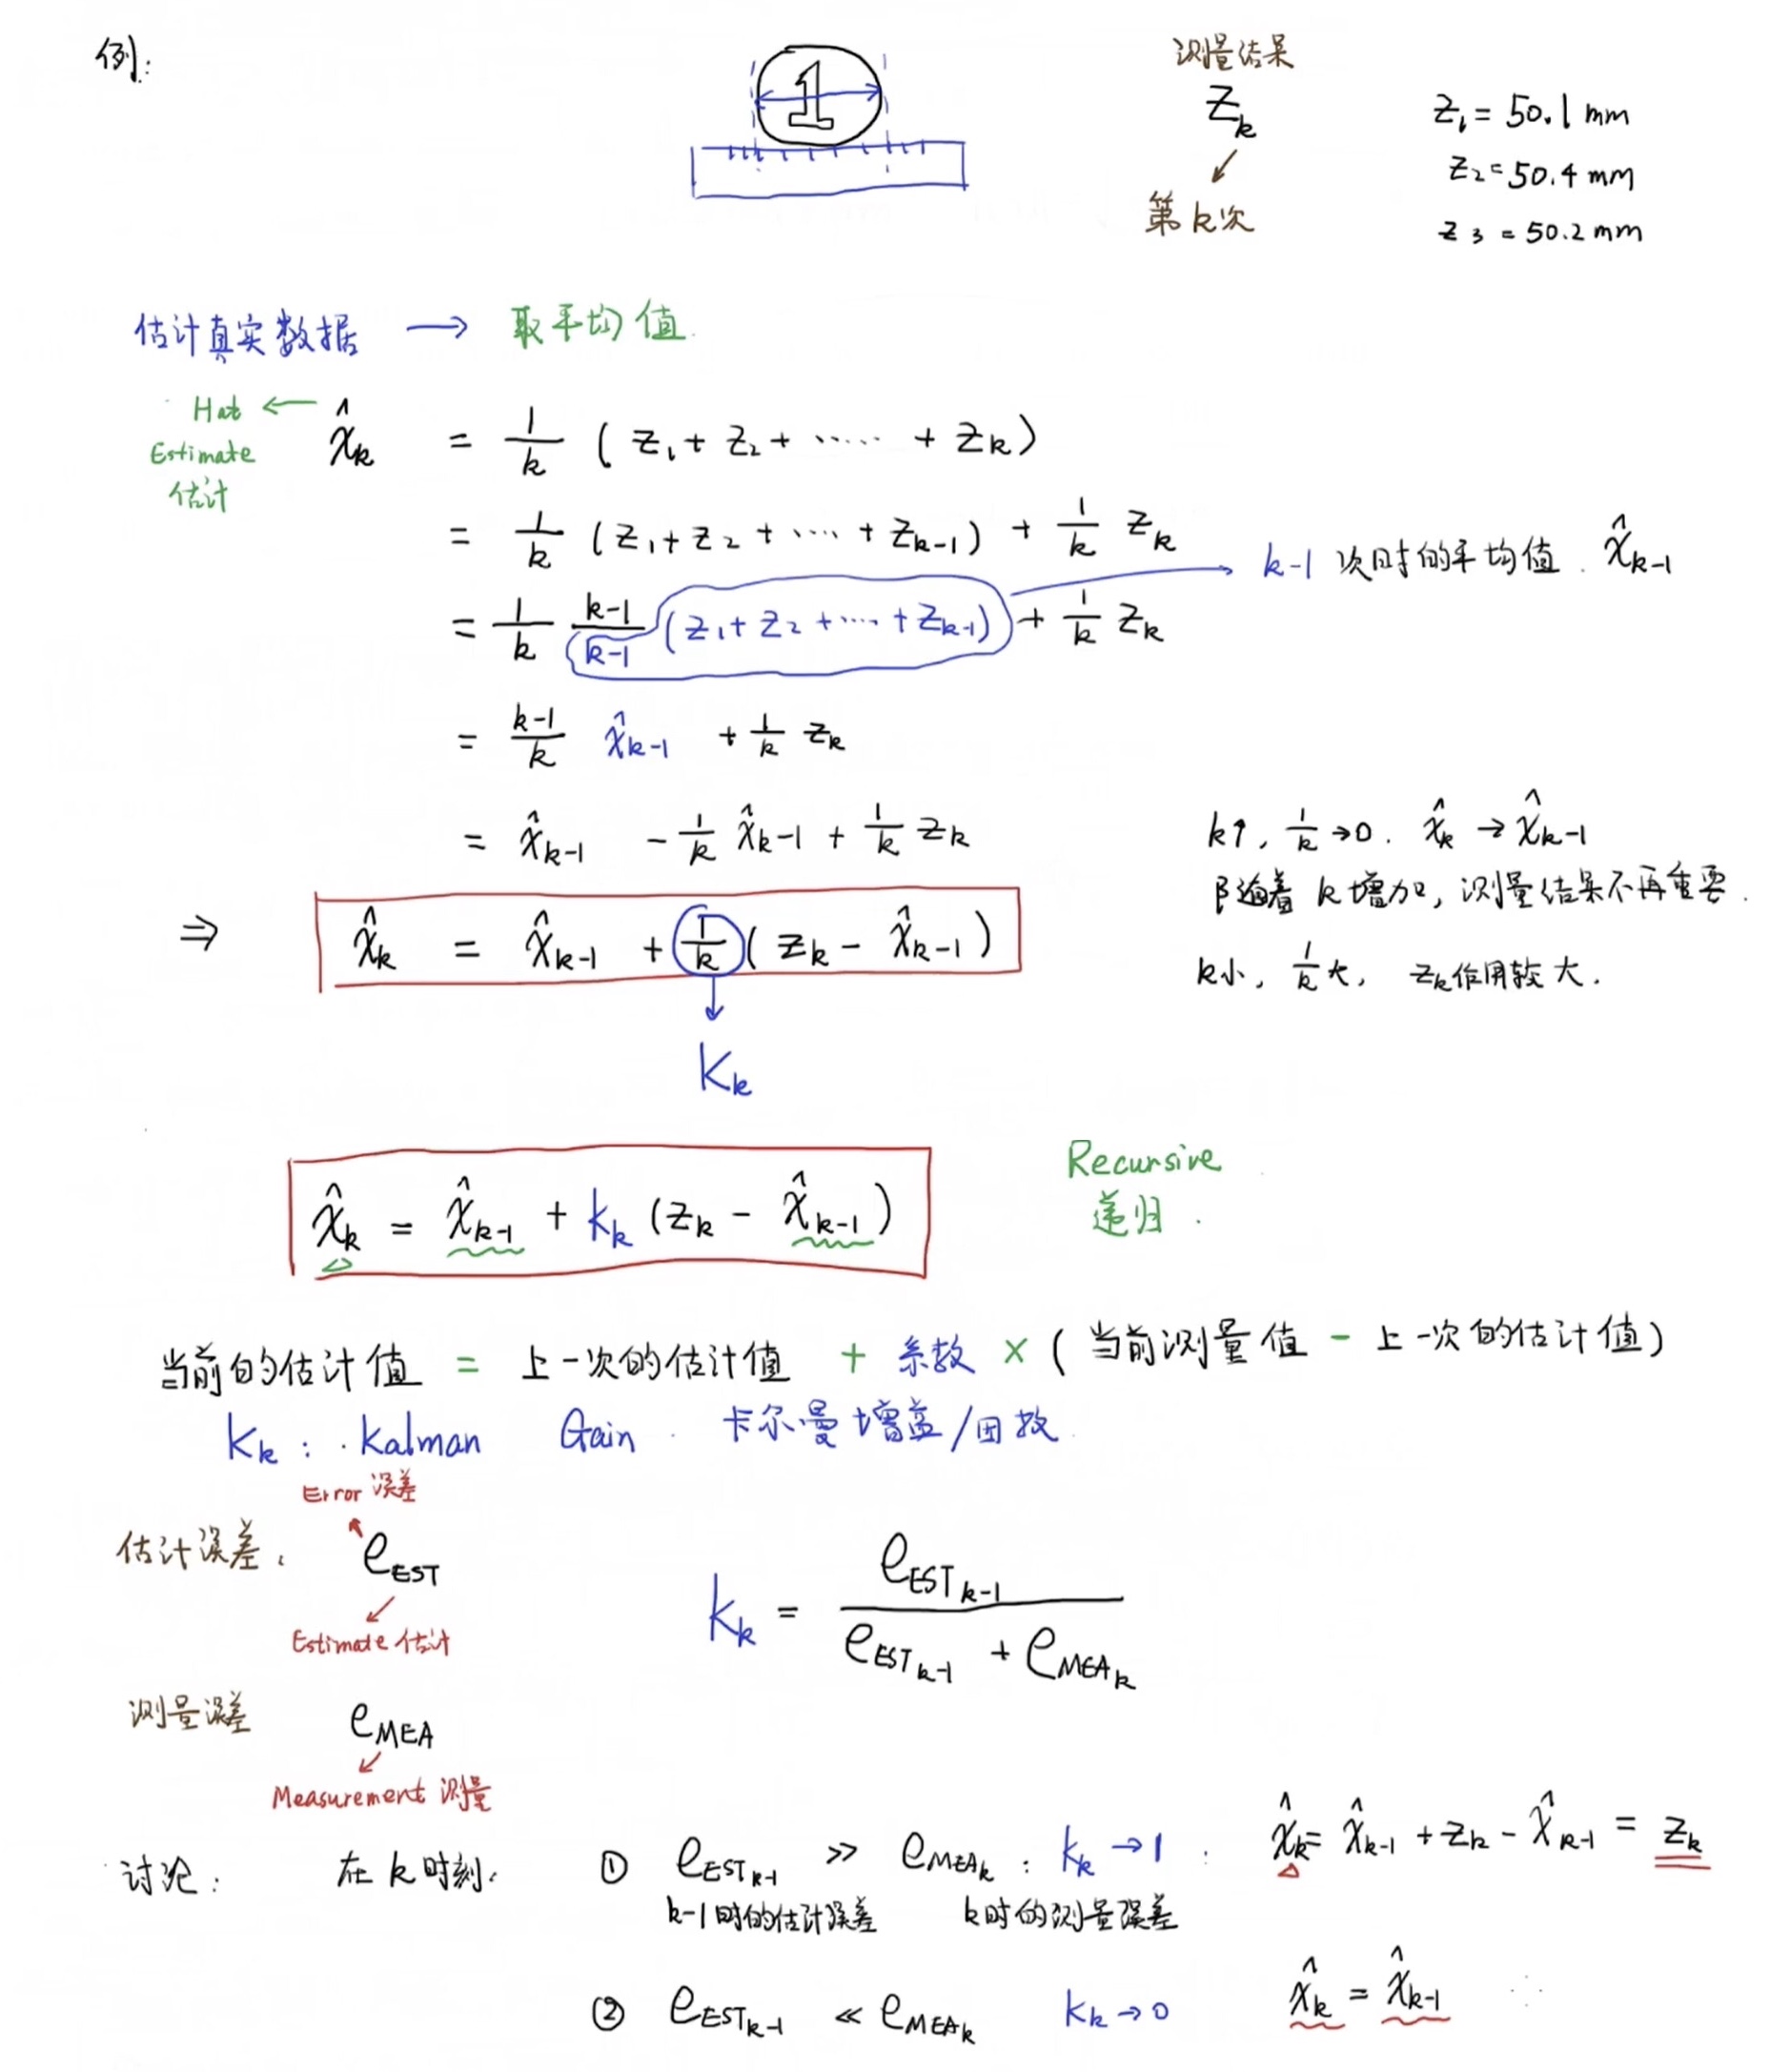 例:
1
测量结果
Z_k
第k次
Z_1 = 50.1 mm
Z_2 = 50.4 mm
Z_3 = 50.2 mm
估计真实数据 → 取平均值
Hat ← x̂_k = 1/k (Z_1 + Z_2 + ..... + Z_k)
Estimate
估计
= 1/k (Z_1 + Z_2 + .... + Z_{k-1}) + 1/k Z_k
= 1/k (k-1)/(k-1) (Z_1 + Z_2 + .... + Z_{k-1}) + 1/k Z_k → k-1 次时的平均值. x̂_{k-1}
= (k-1)/k x̂_{k-1} + 1/k Z_k
= x̂_{k-1} - 1/k x̂_{k-1} + 1/k Z_k
k↑, 1/k → 0. x̂_k → x̂_{k-1}
随着 k 增加, 测量结果不再重要.
k小, 1/k 大, Z_k 作用较大.
⇒ x̂_k = x̂_{k-1} + 1/k (Z_k - x̂_{k-1})
K_k
x̂_k = x̂_{k-1} + K_k (Z_k - x̂_{k-1})
Recursive
递归.
当前的估计值 = 上一次的估计值 + 系数 × (当前测量值 - 上一次的估计值)
K_k: Kalman Gain 卡尔曼增益/因数
Error 误差
估计误差: e_EST
Estimate 估计
K_k = e_EST_{k-1} / (e_EST_{k-1} + e_MEA_k)
测量误差 e_MEA
Measurement 测量
讨论: 在 k 时刻. ① e_EST_{k-1} ≫ e_MEA_k : K_k → 1 : x̂_k = x̂_{k-1} + Z_k - x̂_{k-1} = Z_k
k-1时的估计误差 k时的测量误差
② e_EST_{k-1} ≪ e_MEA_k K_k → 0 x̂_k = x̂_{k-1}